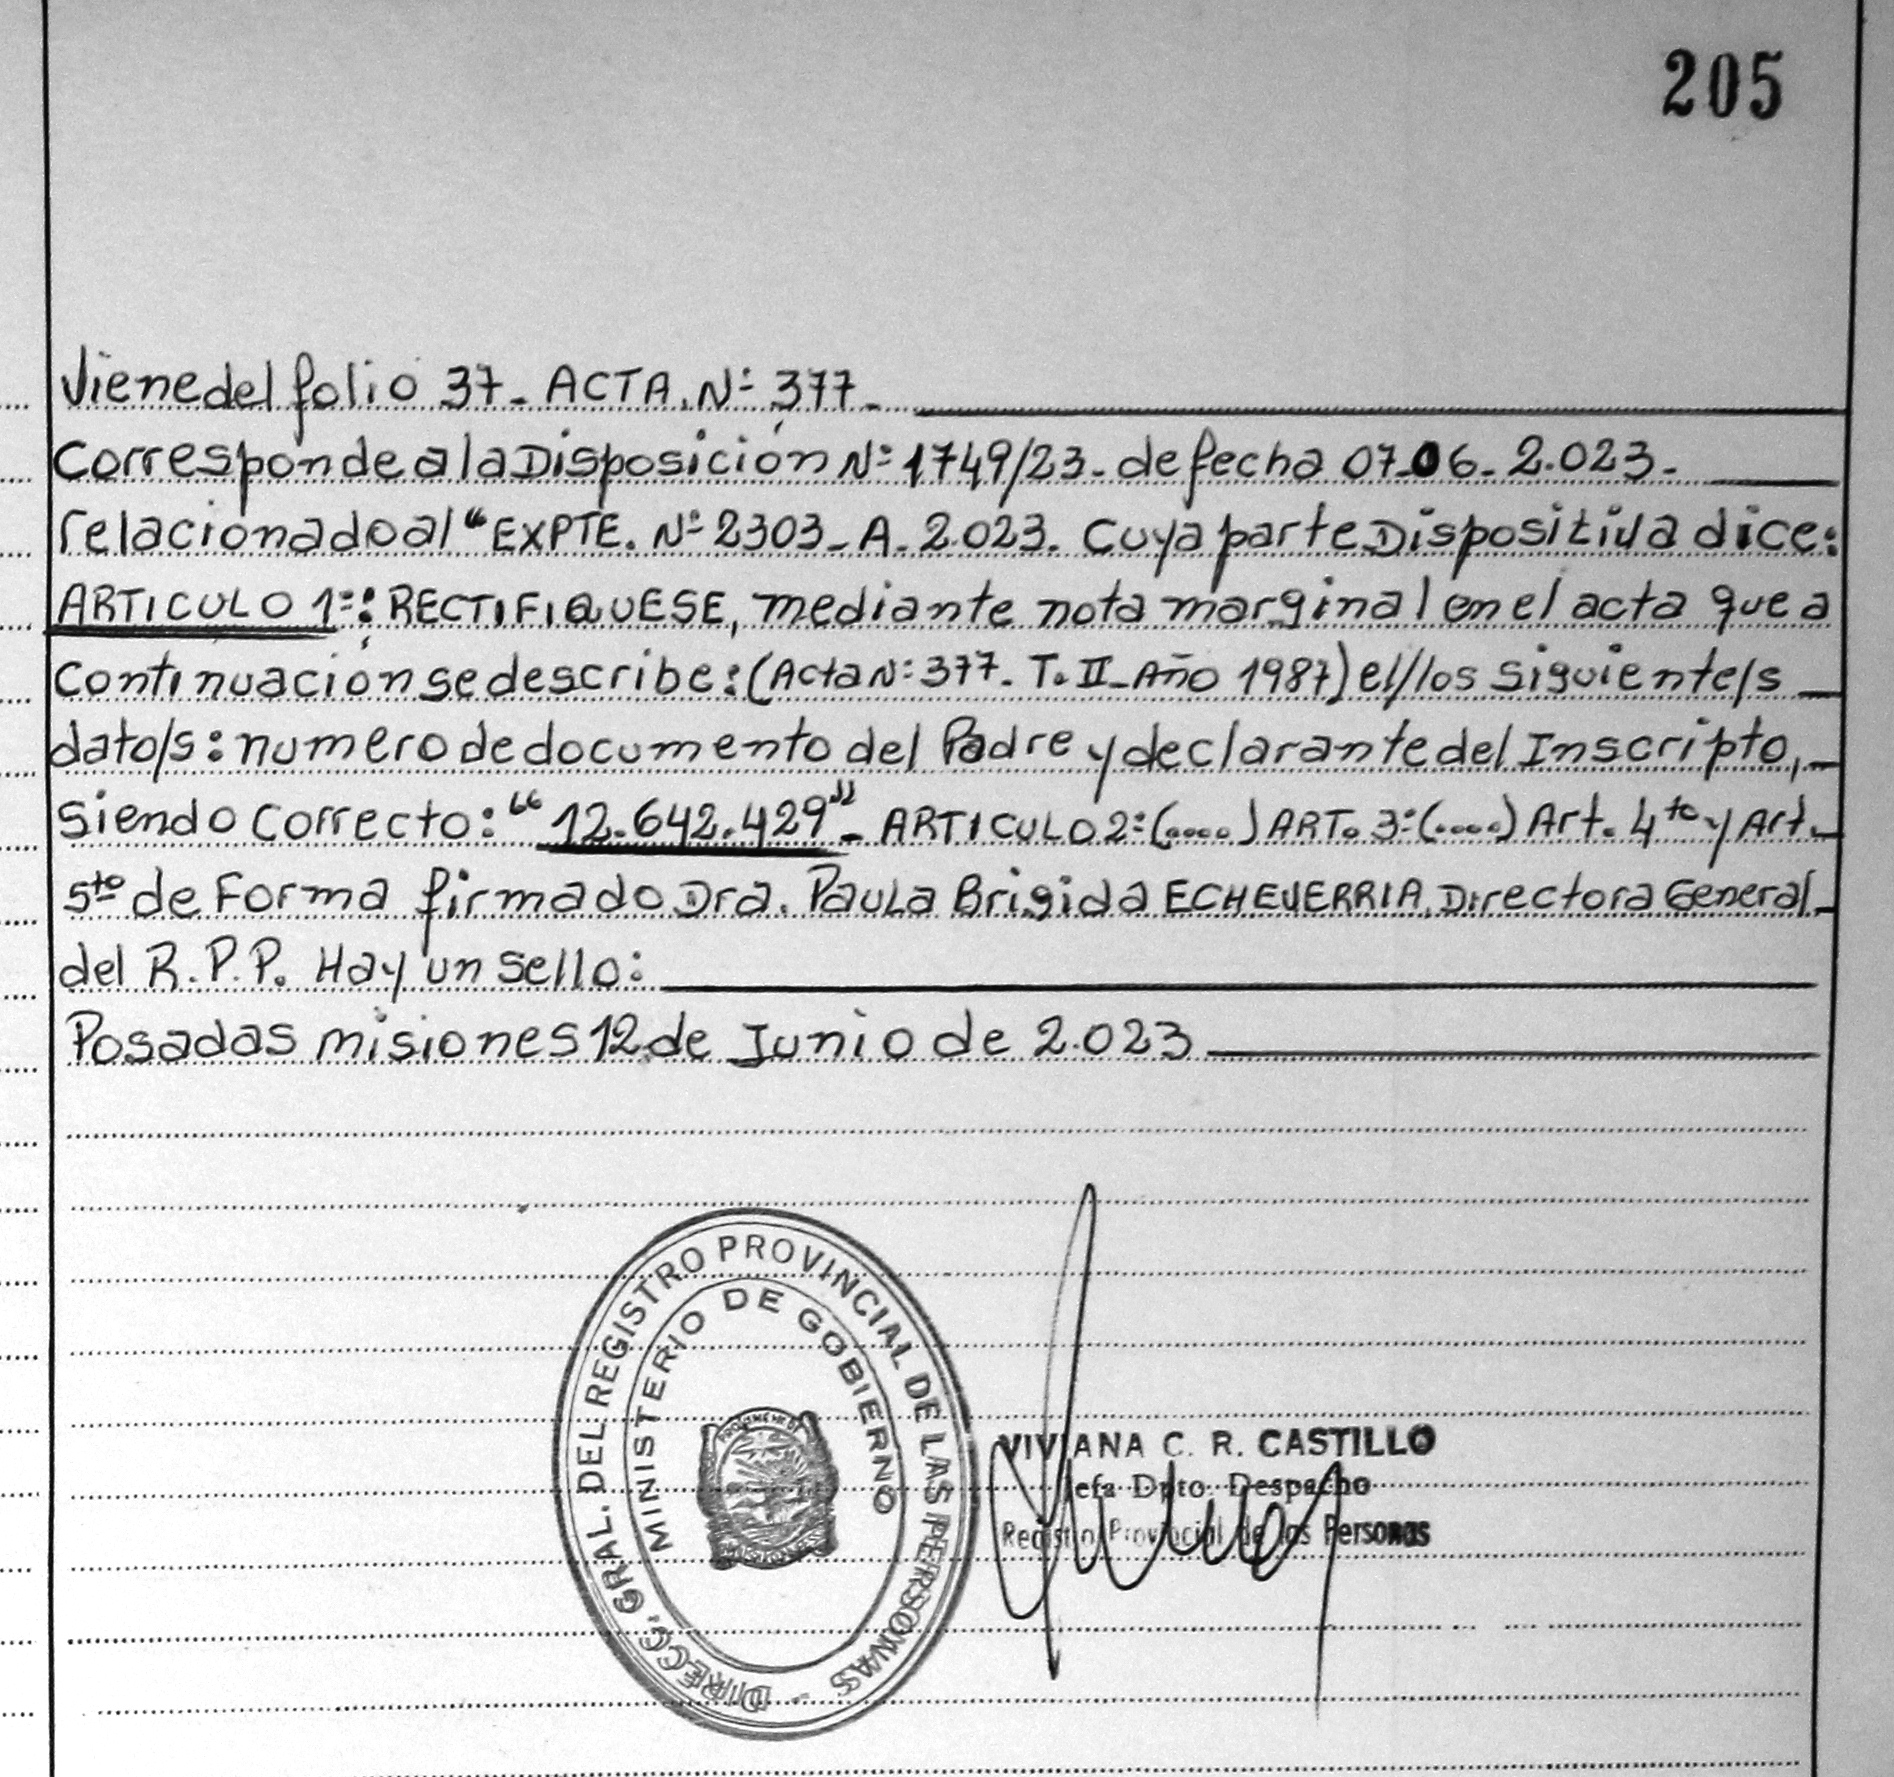 205
Viene del folio 37_ ACTA. Nº 377_
Corresponde a la Disposición Nº 1749/23_ de fecha 07_06_2.023_
relacionado al "EXPTE. Nº 2303_A_2.023. Cuya parte Dispositiva dice:
ARTICULO 1º: RECTIFIQUESE, mediante nota marginal en el acta que a
Continuación se describe: (Acta Nº 377_ T. II_ Año 1987) el/los siguiente/s
dato/s: numero de documento del Padre y declarante del Inscripto,
siendo correcto: "12.642.429"_ ARTICULO 2º (....) ART. 3º (....) Art. 4to y Art.
5to de Forma firmado Dra. Paula Brigida ECHEVERRIA, Directora General
del R.P.P. Hay un sello:
Posadas misiones 12 de Junio de 2.023
DIRECC. GRAL. DEL REGISTRO PROVINCIAL DE LAS PERSONAS -
MINISTERIO DE GOBIERNO
PROVINCIA DE
MISIONES
VIVIANA C. R. CASTILLO
Jefa Dpto. Despacho
Registro Provincial de las Personas